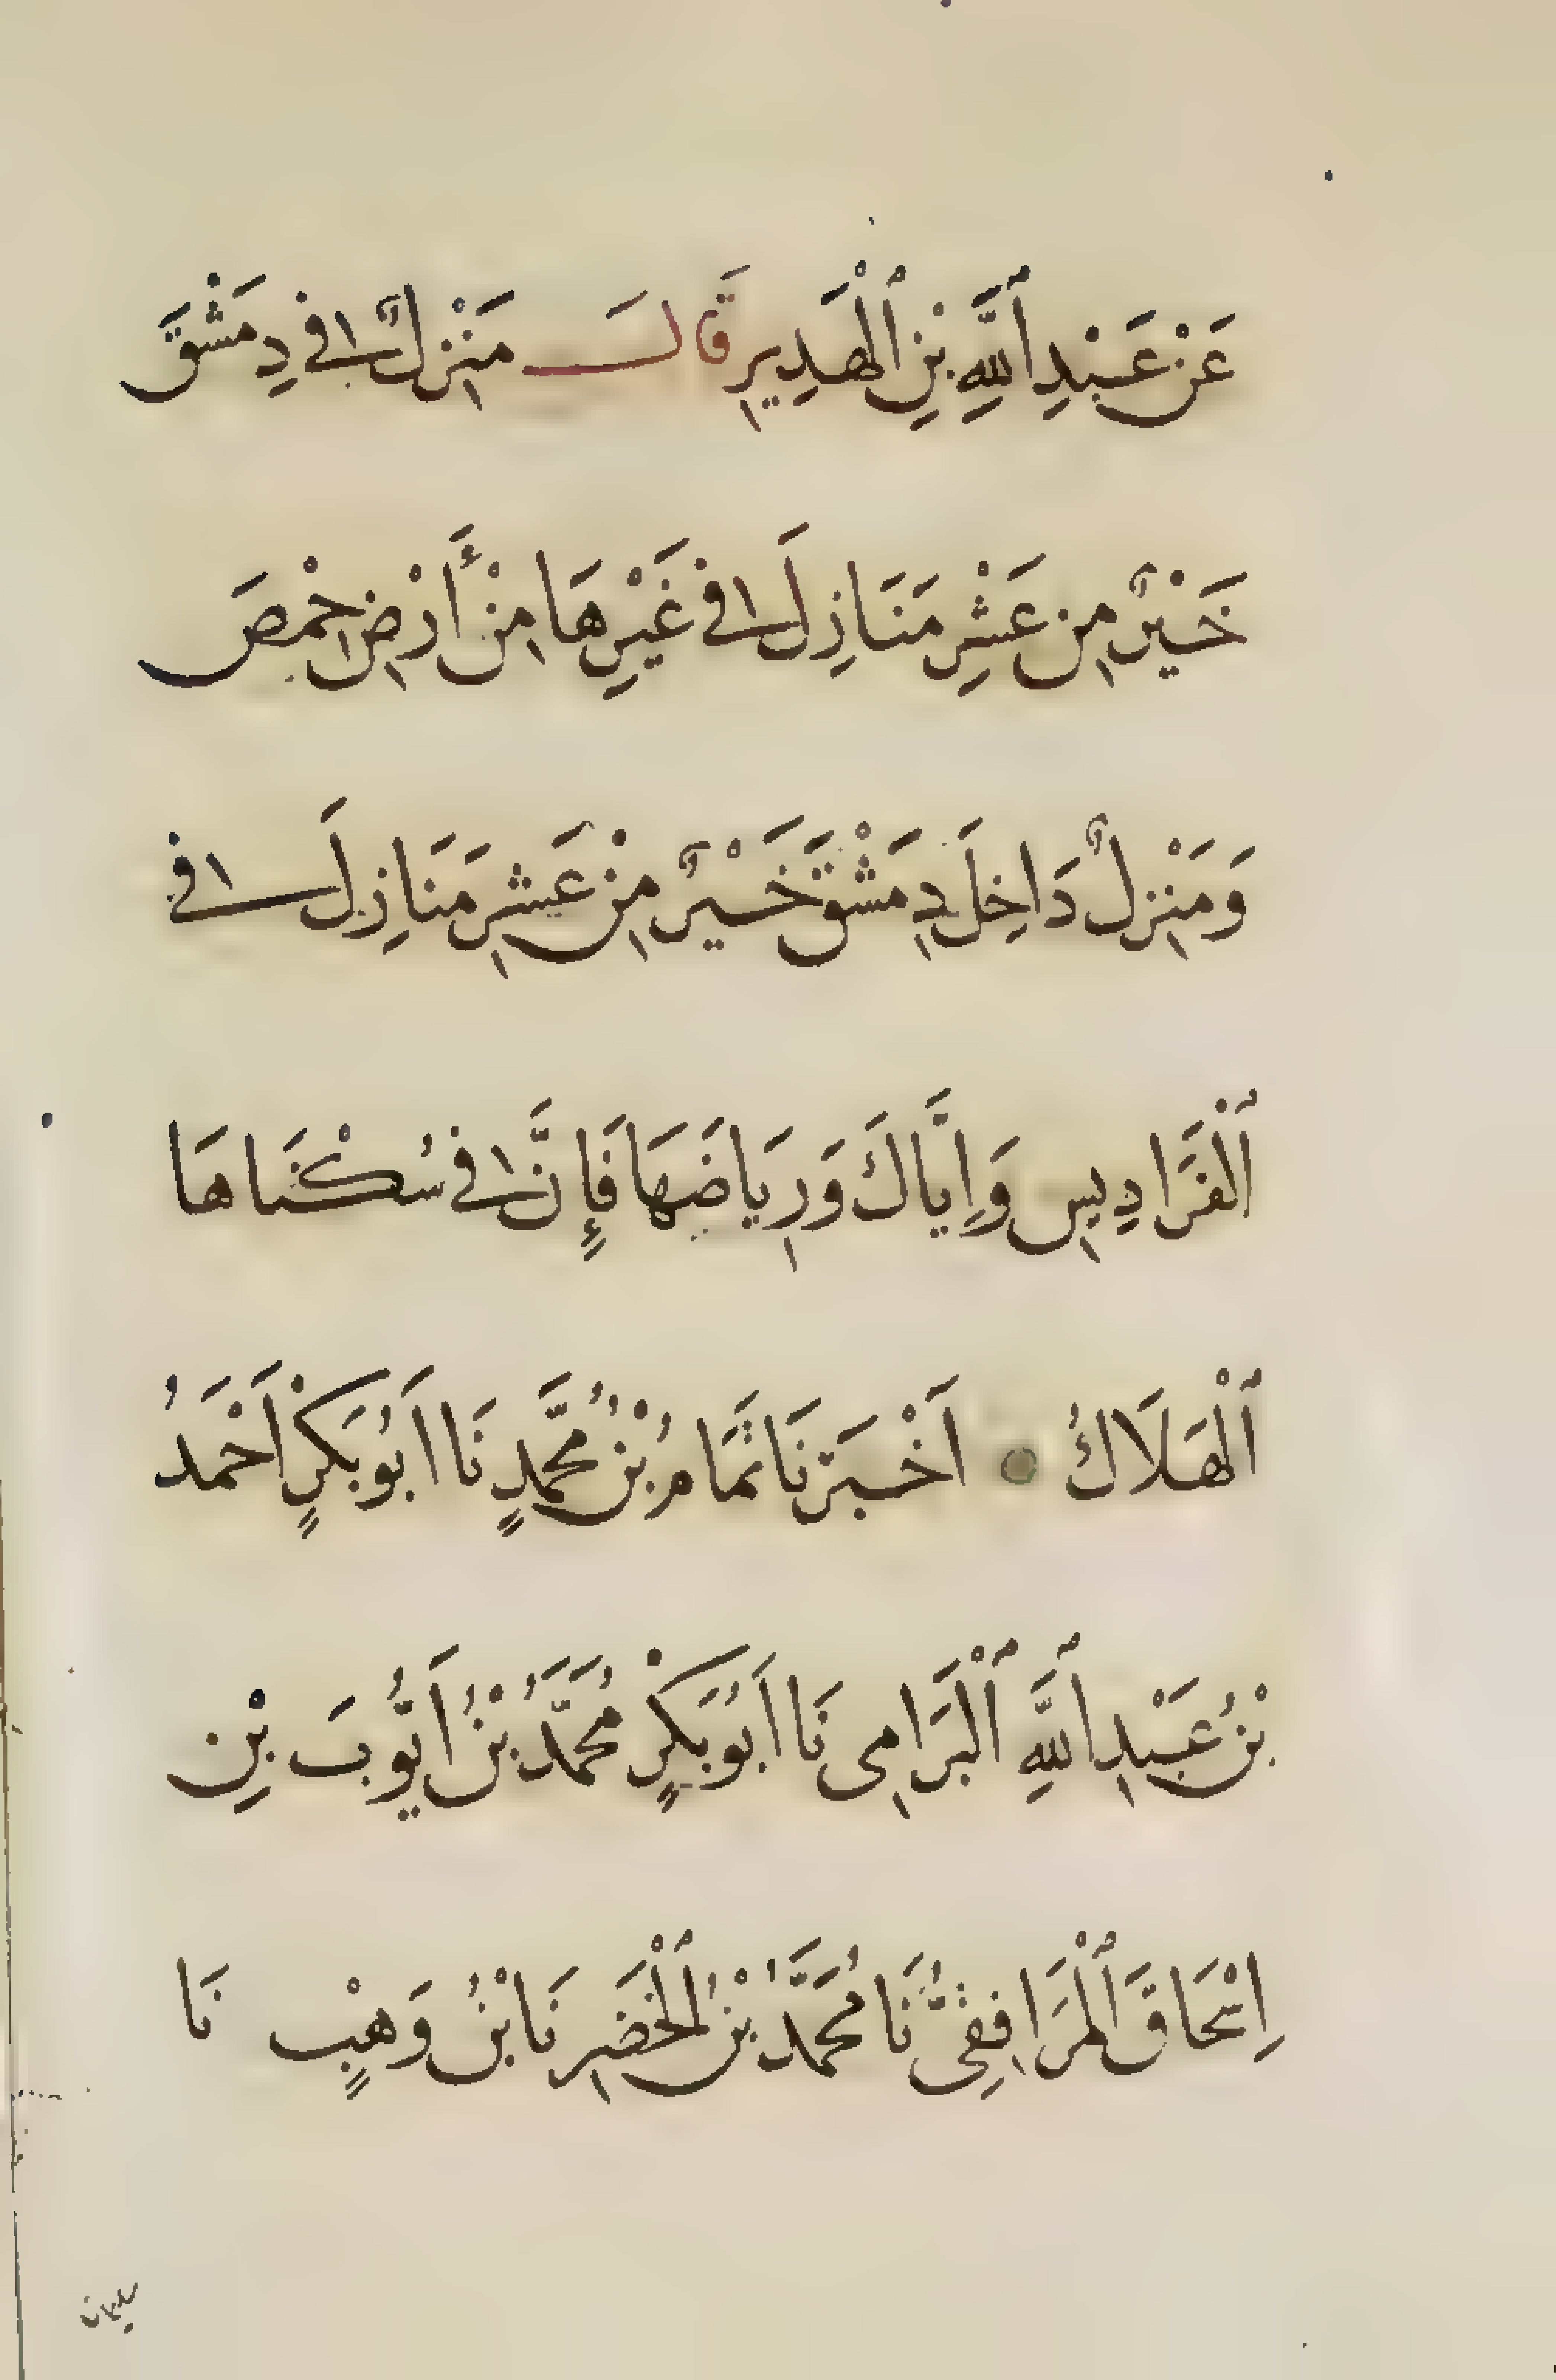 عَنْ عَبْدِ ٱللَّهِ بْنِ ٱلْهَدِيرِ قَالَ مَنْزِلٌ فِي دِمَشْقَ
خَيْرٌ مِن عَشْرِ مَنَازِلَ فِي غَيْرِهَا مِنْ أَرْضِ حِمْصَ
وَمَنْزِلٌ دَاخِلَ دِمَشْقَ خَيْرٌ مِنْ عَشرِ مَنَازِلَ فِي
ٱلْفَرَادِيسِ وَإِيَّاكَ وَرِيَاضَهَا فَإِنَّ فِي سُكْنَاهَا
ٱلْهَلَاكُ اَخْبَرَنَا تَمَّامُ بْنُ مُحَمَّدٍ نَا اَبُو بَكْرٍ اَحْمَدُ
بْنُ عَبْدِ ٱللَّهِ ٱلْبَرَامِى نَا اَبُو بَكْرٍ مُحَمَّدُ بْنُ اَيُّوبَ بْنِ
اِسْحَاقَ ٱلْمَرَافِقِىُّ نَا مُحَمَّدُ بْنُ ٱلْخَضِرِ نَا بْنُ وَهْبٍ نَا